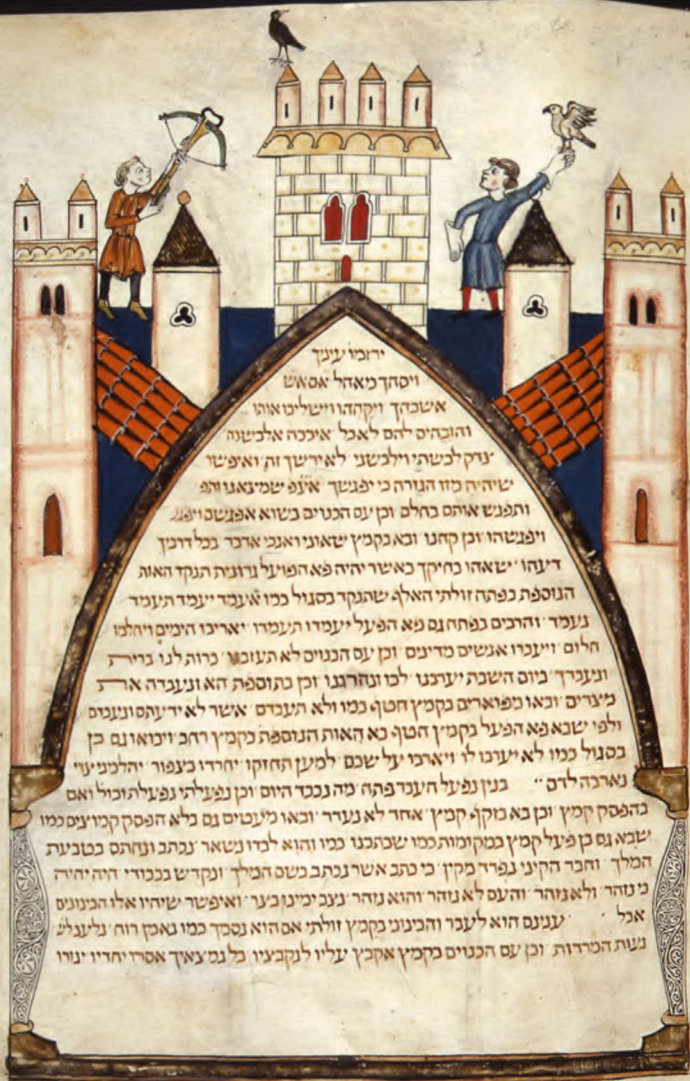 ירזמו עיניך
ויסחך מאהל אם אש
אשכחך ויקחהו וישליכו אותו
והזבחים להם לאכל איככה אלבשנה
צדק לבשתי וילבשני לא אירשך זה ואיפשר
שיהיה מזו הגזרה כי יפגשך אעפ שמצאנו ותפ
ותפגש אותם בחלם וכן עם הכנוים בשוא אפגשם ויפג
ויפגשהו וכן קחנו ובא בקמץ שאוני ואנכי אדבר בכל דרכיך
דעהו שאהו בחיקך כאשר יהיה פא הפועל גרונית תנקד האות
הנוספת בפתח זולתי האלף שתנקד בסגול כמו אעמד יעמד תעמד
נעמד והרבים בפתח גם פא הפעל יעמדו תעמדו יאריכו הימים ויחלמו
חלום ויעברו אנשים מדינים וכן עם הכנוים לא תעזבנו כרות לנו ברית
ונעבדך ביום השבת יערכנו לכו ונהרגנו וכן בתוספת הא ונעבדה את
מצרים ובאו מפוארים בקמץ חטף כמו ולא תעבדם אשר לא ידעתם ונעבדם
ולפי שבא פא הפעל בקמץ חטף בא האות הנוספת בקמץ רחב ויבואו גם כן
בסגול כמו לא יערכו לו ויארבו על שכם למען תחזקו יחרדו כצפור יהלמני
נארבה לדם בנין נפעל העבר פתח מה נכבד היום וכן נפעלתי נפעלת וכול ואם
בהפסק קמץ וכן בא בזקף קמץ אחד לא נעדר ובאו מעטים גם בלא הפסק קמוצים כמו
שבא גם כן פעל קמץ במקומות כמו שכתבנו כמו והוא לבדו נשאר נכתב ונחתם בטבעת
המלך וחבר הקיני נפרד מקין כי כתב אשר נכתב בשם המלך ונקדש בכבודי היה יהיה
כי נזהר ולא נזהר והעם לא נזהר והוא נזהר נצב ימינו כצר ואיפשר שיהיו אלו הבינונים
אבל ענינם הוא לעבר והבינוני בקמץ זולתי אם הוא נסמך כמו נאמן רוח נלעג לש
נעות המרדות וכן עם הכנוים בקמץ אקבץ עליו לנקבציו כל נמצאיך אסרו יחדיו יגורו